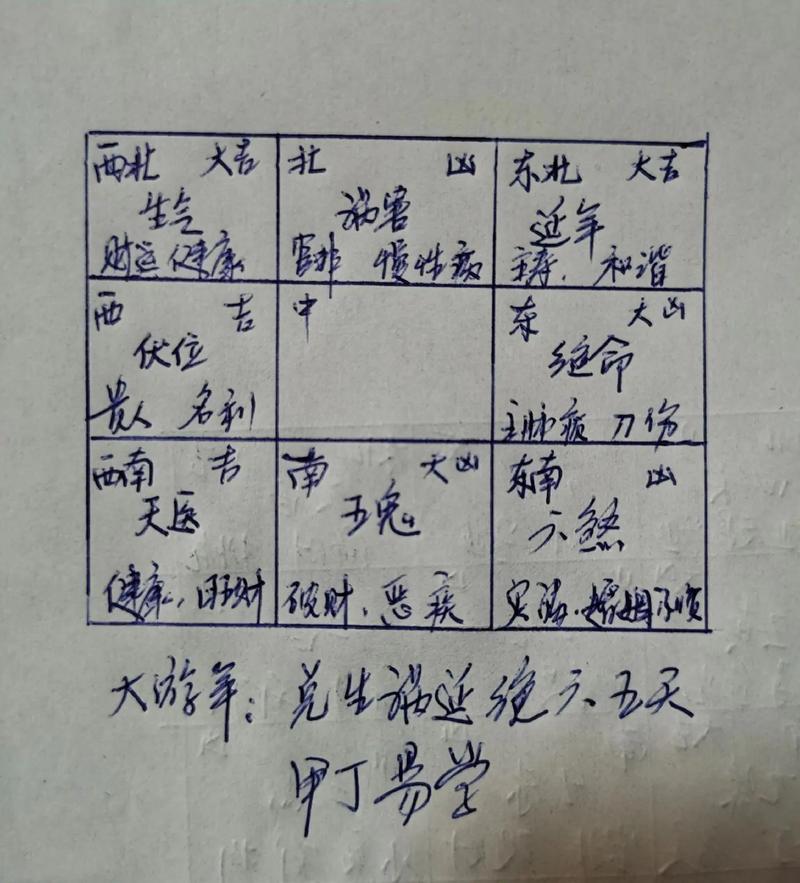 西北 大吉
生气
财运健康
北 凶
祸害
官非 慢性病
东北 大吉
延年
主寿、和谐
西 吉
伏位
贵人 名利
中
东 大凶
绝命
主肺疾 刀伤
西南 吉
天医
健康、旺财
南 大凶
五鬼
破财、恶疾
东南 凶
六煞
灾祸、婚姻不顺
大游年：兑生祸延绝六五天
甲丁易学